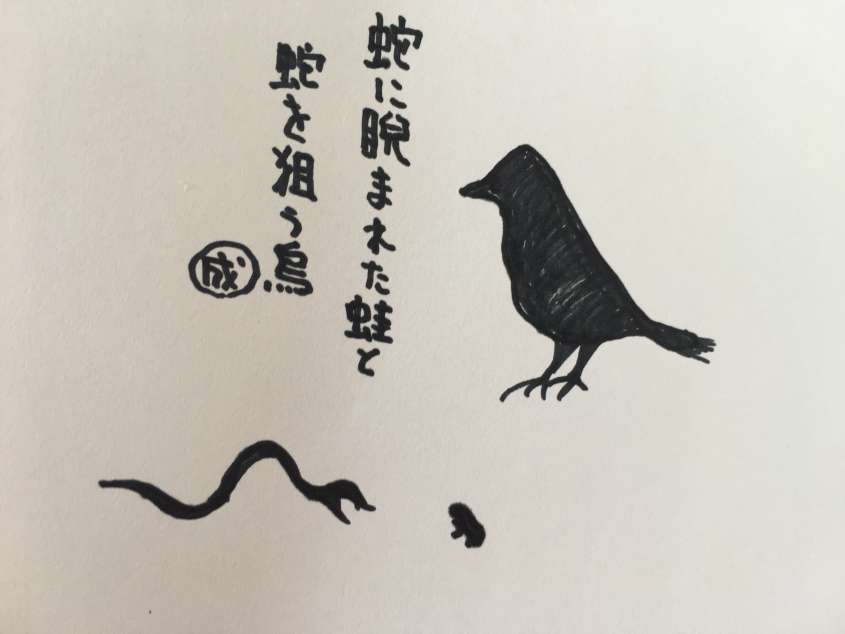 蛇に睨まれた蛙と
蛇を狙う烏
成